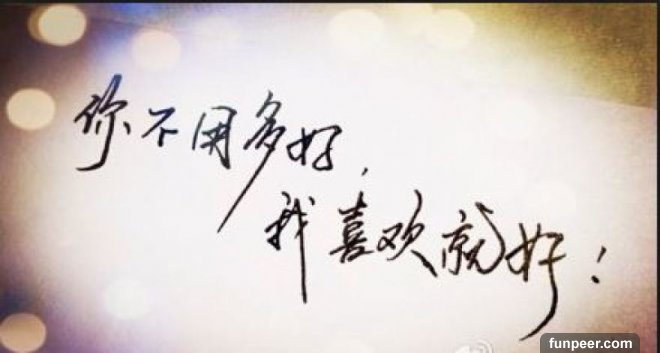 你不用多好,
我喜欢就好!
funpeer.com